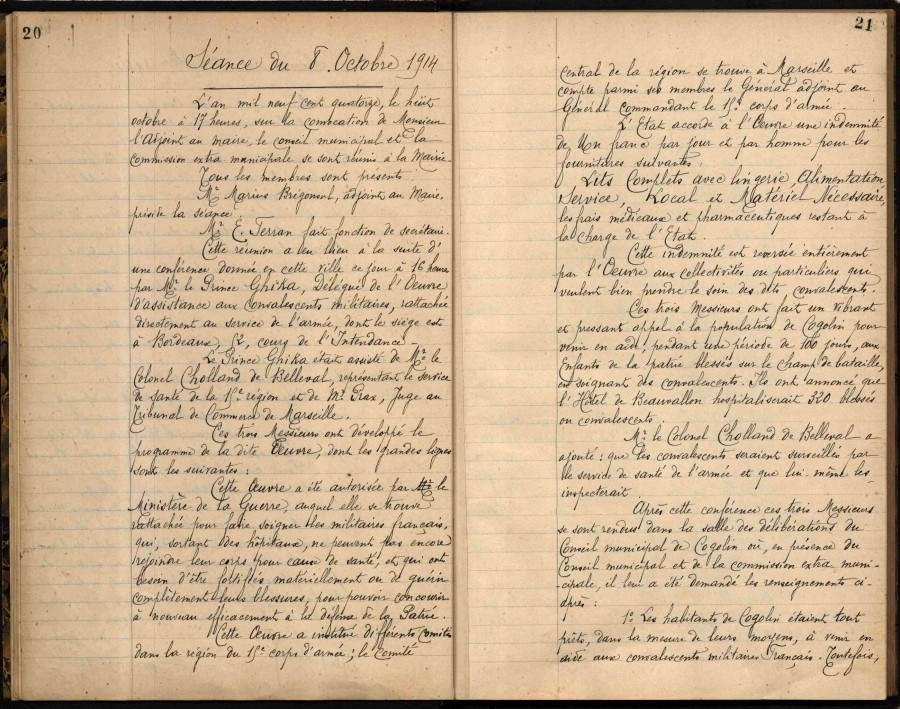 20
Séance du 8 Octobre 1914
L'an mil neuf cent quatorze, le huit
octobre à 17 heures, sur la convocation de Monsieur
l'Adjoint au maire, le conseil municipal et la
commission extra municipale se sont réunis à la Mairie.
Tous les membres sont présents.
Mr Marius Brigonul, adjoint au Maire,
préside la séance.
Mr E. Terran fait fonction de secrétaire.
Cette réunion a eu lieu à la suite d'
une conférence donnée en cette ville ce jour à 16 heures
par Mr le Prince Ghika, Délégué de l'Oeuvre
d'assistance aux convalescents militaires, rattachée
directement au service de l'armée, dont le siège est
à Bordeaux, 2, cours de l'Intendance.
Le Prince Ghika était assisté de Mr le
Colonel Cholland de Belleval, représentant le service
de santé de la 15e région et de Mr Prax, Juge au
Tribunal de Commerce de Marseille.
Ces trois Messieurs ont développé le
programme de la dite Oeuvre, dont les grandes lignes
sont les suivantes :
Cette Oeuvre a été autorisée par le
Ministère de la Guerre, auquel elle se trouve
rattachée pour faire soigner les militaires français,
qui, sortant des hôpitaux, ne peuvent pas encore
rejoindre leur corps pour cause de santé, et qui ont
besoin d'être fortifiés matériellement ou de guérir
complètement leurs blessures, pour pouvoir concourir
à nouveau efficacement à la défense de la Patrie.
Cette Oeuvre a institué différents Comités
dans la région du 15e corps d'armée ; le Comité
21
central de la région se trouve à Marseille et
compte parmi ses membres le Général adjoint au
Général commandant le 15e corps d'armée.
L'Etat accorde à l'Oeuvre une indemnité
de Un franc par jour et par homme pour les
fournitures suivantes.
Lits Complets avec lingerie, Alimentation
Service, Local et Matériel Nécessaire,
les frais médicaux et pharmaceutiques restant à
la charge de l'Etat.
Cette indemnité est reversée entièrement
par l'Oeuvre aux collectivités ou particuliers qui
veulent bien prendre le soin des dits convalescents.
Ces trois Messieurs ont fait un vibrant
et pressant appel à la population de Cogolin pour
venir en aide, pendant une période de 100 jours, aux
Enfants de la patrie blessés sur le champ de bataille,
en soignant des convalescents. Ils ont annoncé que
l'Hôtel de Beauvallon hospitaliserait 320 blessés
ou convalescents.
Mr le Colonel Cholland de Belleval a
ajouté : que les convalescents seraient surveillés par
le service de santé de l'armée et que lui-même les
inspecterait.
Après cette conférence ces trois Messieurs
se sont rendus dans la salle des délibérations du
Conseil municipal de Cogolin où, en présence du
Conseil municipal et de la commission extra muni-
-cipale, il leur a été demandé les renseignements ci-
après :
1o Les habitants de Cogolin étaient tout
prêts, dans la mesure de leurs moyens, à venir en
aide aux convalescents militaires Français. Toutefois,